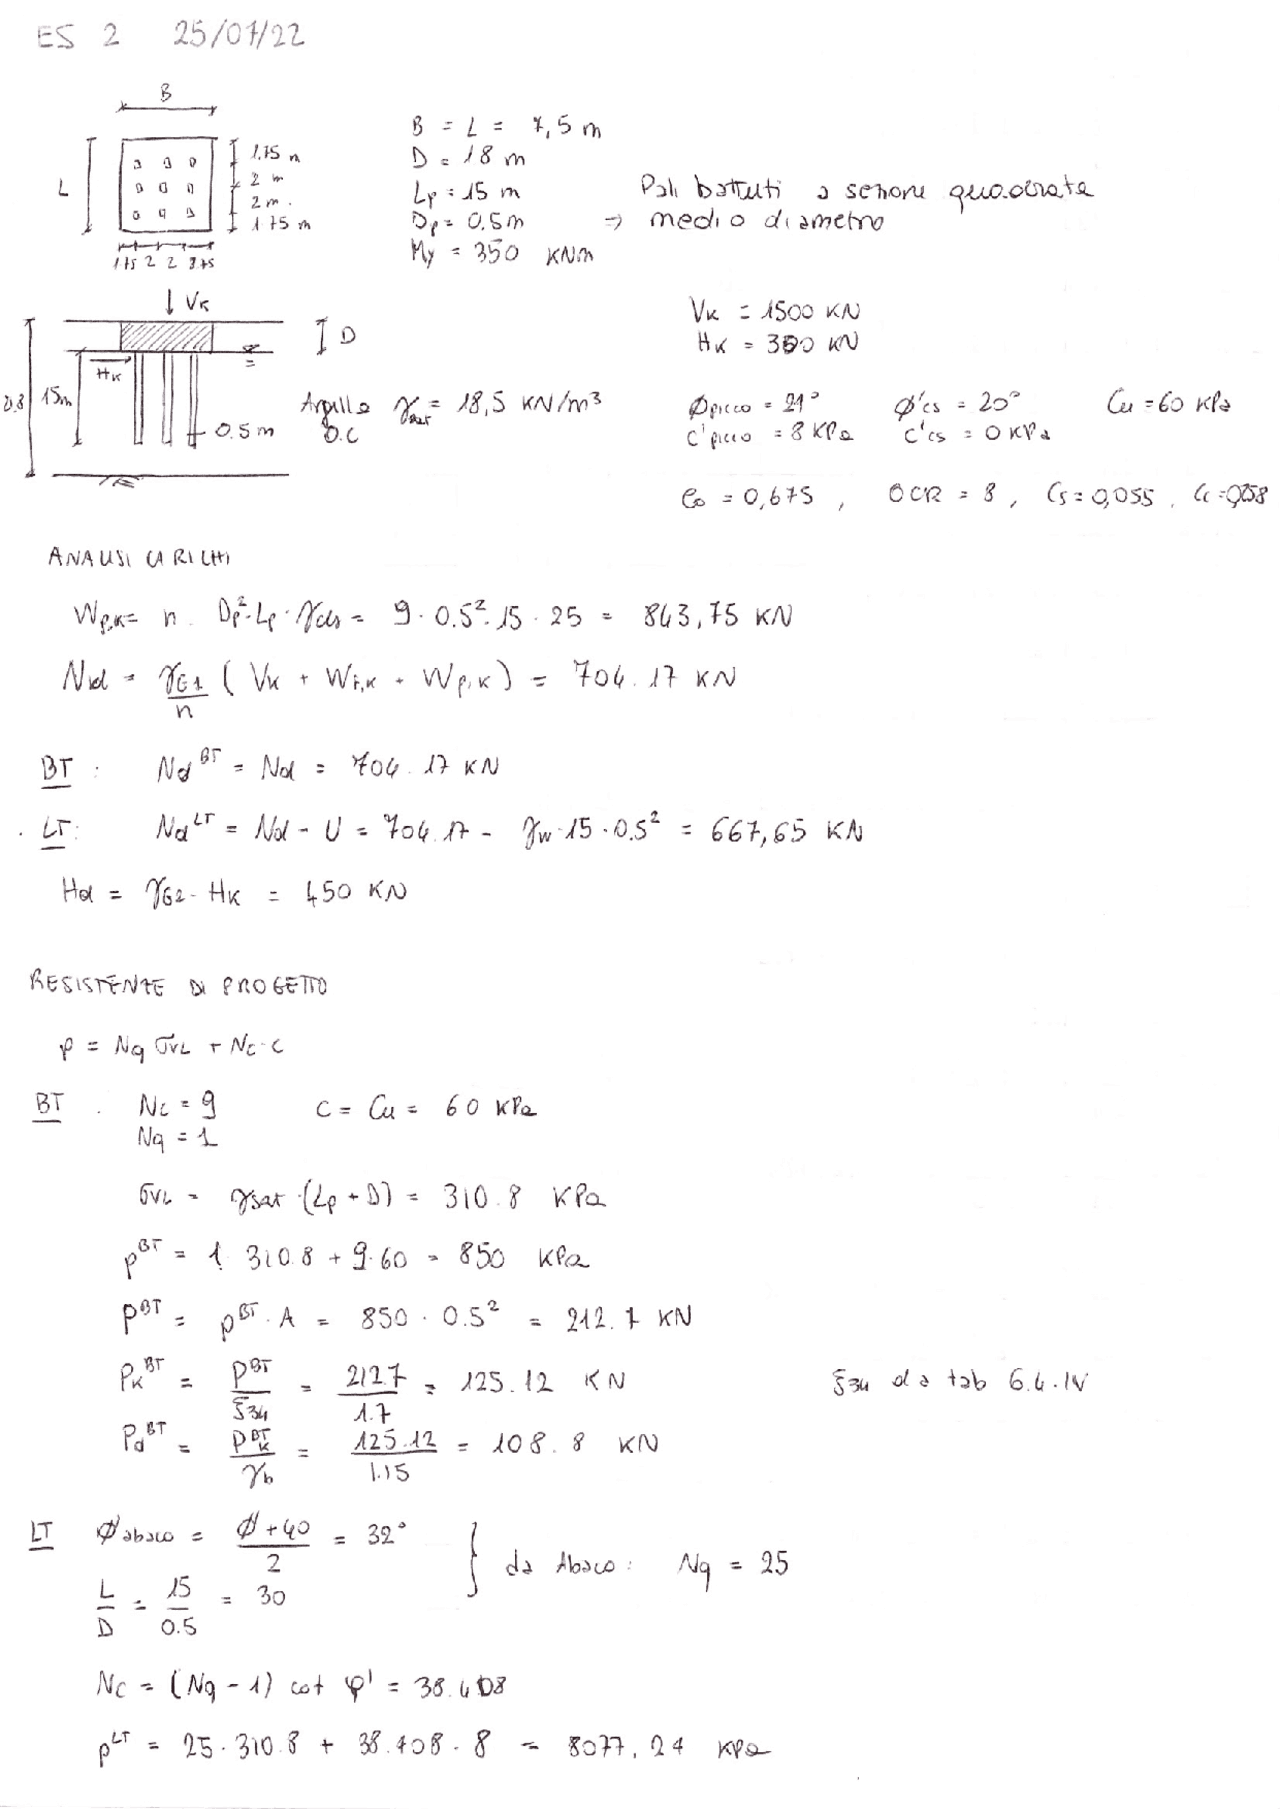 ES 2 25/07/22
B
L
1.75 m
2 m
2 m.
1.75 m
1.75 2 2 1.75
B = L = 7,5 m
D = 1.8 m
Lp = 15 m
Dp = 0.5m
My = 350 KNm
Pali battuti a sezione quadrata
⇒ medio diametro
↓ Vk
D
Hk
15m
0.5 m
Argilla γsat = 18,5 KN/m³
O.C
Vk = 1500 KN
Hk = 300 KN
Øpicco = 24° Ø'cs = 20° Cu = 60 KPa
C'picco = 8 KPa C'cs = 0 KPa
e0 = 0,675 , OCR = 8 , Cs = 0,055 , Cc = 0,258
ANALISI CARICHI
Wp,k = n · Dp² · Lp · γcls = 9 · 0.5² · 15 · 25 = 843,75 KN
Nd = γG1/n ( Vk + Wf,k + Wp,k ) = 704.17 KN
BT : Nd^BT = Nd = 704.17 KN
LT : Nd^LT = Nd - U = 704.17 - γw · 15 · 0.5² = 667,65 KN
Hd = γG2 · Hk = 450 KN
RESISTENZE DI PROGETTO
p = Nq σvL + Nc · c
BT . Nc = 9 c = Cu = 60 KPa
Nq = 1
σvL = γsat · (Lp + D) = 310.8 KPa
p^BT = 1 · 310.8 + 9 · 60 = 850 KPa
P^BT = p^BT · A = 850 · 0.5² = 212.7 KN
Pk^BT = P^BT/ξ34 = 212.7/1.7 = 125.12 KN ξ34 da tab 6.4.IV
Pd^BT = Pk^BT/γb = 125.12/1.15 = 108.8 KN
LT Øabaco = (Ø+40)/2 = 32° } da Abaco : Nq = 25
L/D = 15/0.5 = 30
Nc = (Nq - 1) cot φ' = 38.408
p^LT = 25 · 310.8 + 38.408 · 8 = 8077,24 KPa